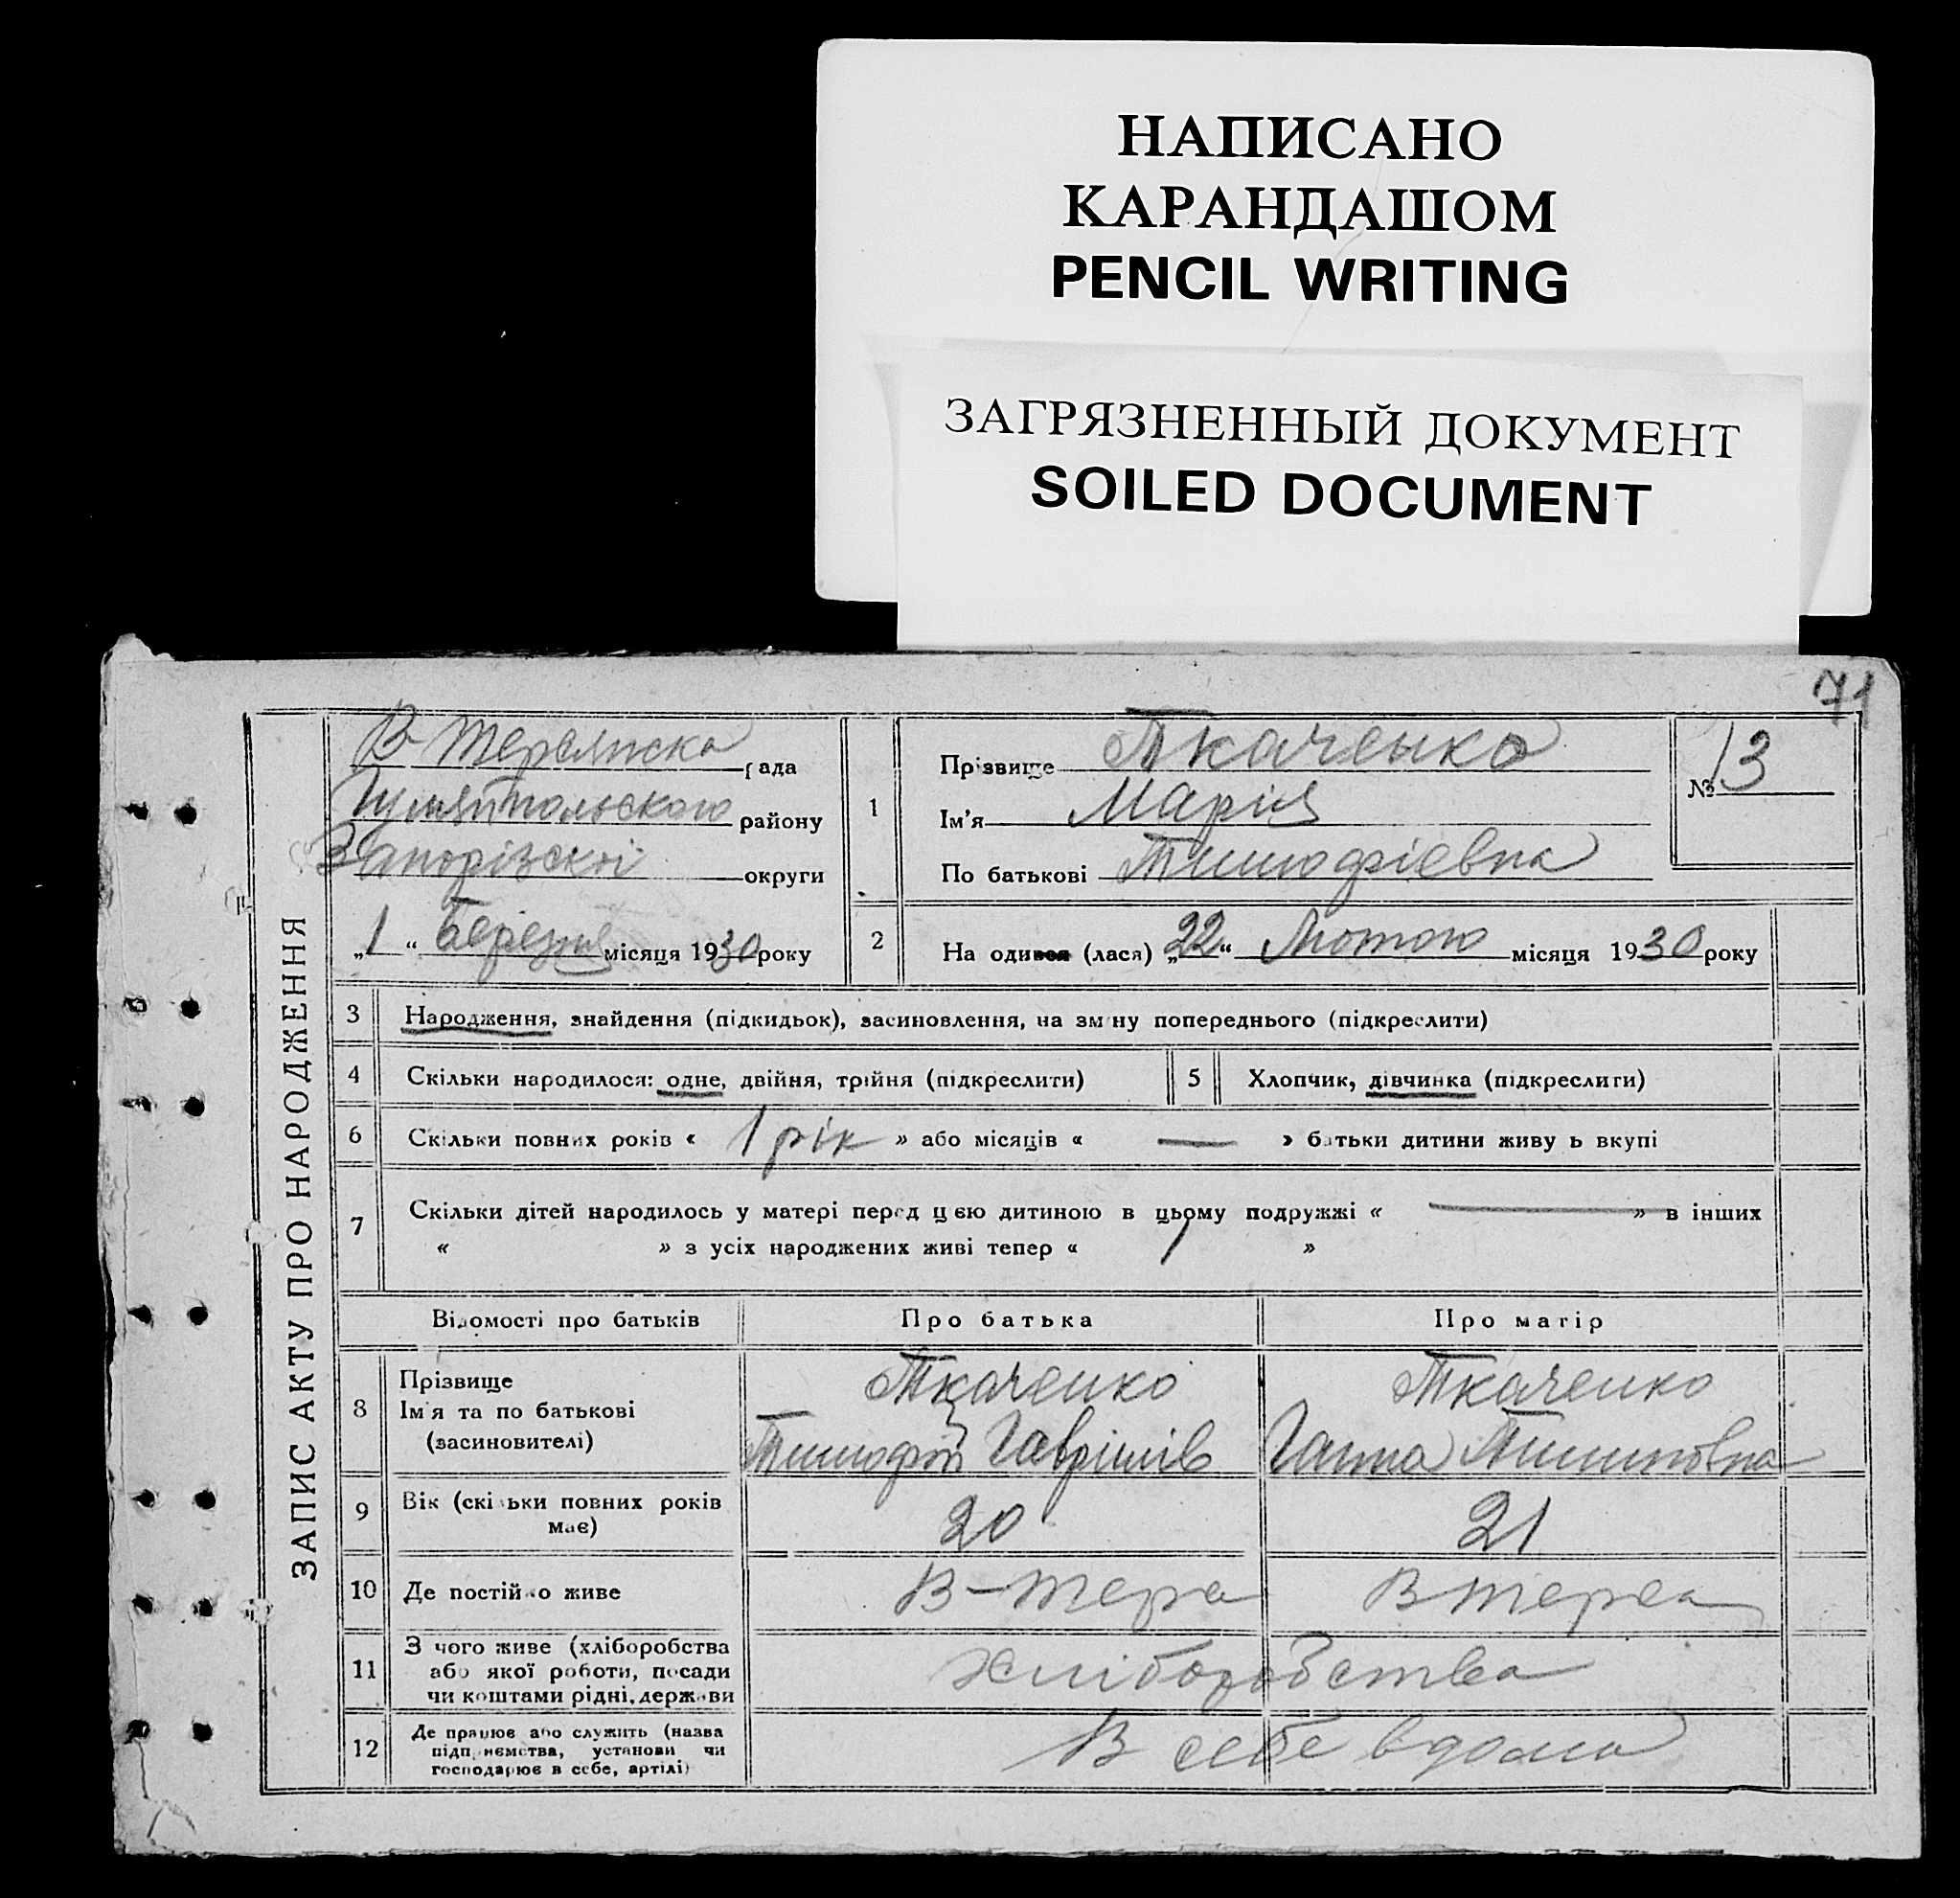 НАПИСАНО
КАРАНДАШОМ
PENCIL WRITING
ЗАГРЯЗНЕННЫЙ ДОКУМЕНТ
SOILED DOCUMENT
71
ЗАПИС АКТУ ПРО НАРОДЖЕННЯ
В-Терсянска рада
Гуляйпольского району
Запорізскоі округи
„1“ Березня місяця 1930 року
1
Прізвище Ткаченко
Ім'я Марія
По батькові Тимофіевна
№ 13
2
На один (лася) „22“ Лютого місяця 1930 року
3 Народження, знайдення (підкидьок), засиновлення, на зміну попереднього (підкреслити)
4 Скільки народилося: одне, двійня, трійня (підкреслити)
5 Хлопчик, дівчинка (підкреслити)
6 Скільки повних років « 1 рік » або місяців « — » батьки дитини живуть вкупі
7 Скільки дітей народилось у матері перед цією дитиною в цьому подружжі « — » в інших
« » з усіх народжених живі тепер « 1 »
Відомості про батьків Про батька Про матір
8 Прізвище
Ім'я та по батькові
(засиновителі)
Ткаченко
Тимофій Гаврилів
Ткаченко
Ганна
9 Вік (скільки повних років
має)
20 21
10 Де постійно живе В-Терса В Терса
11 З чого живе (хліборобства
або якої роботи, посади
чи коштами рідні, держави
хліборобства
12 Де працює або служить (назва
підприємства, установи чи
господарює в себе, артілі)
В себе вдома